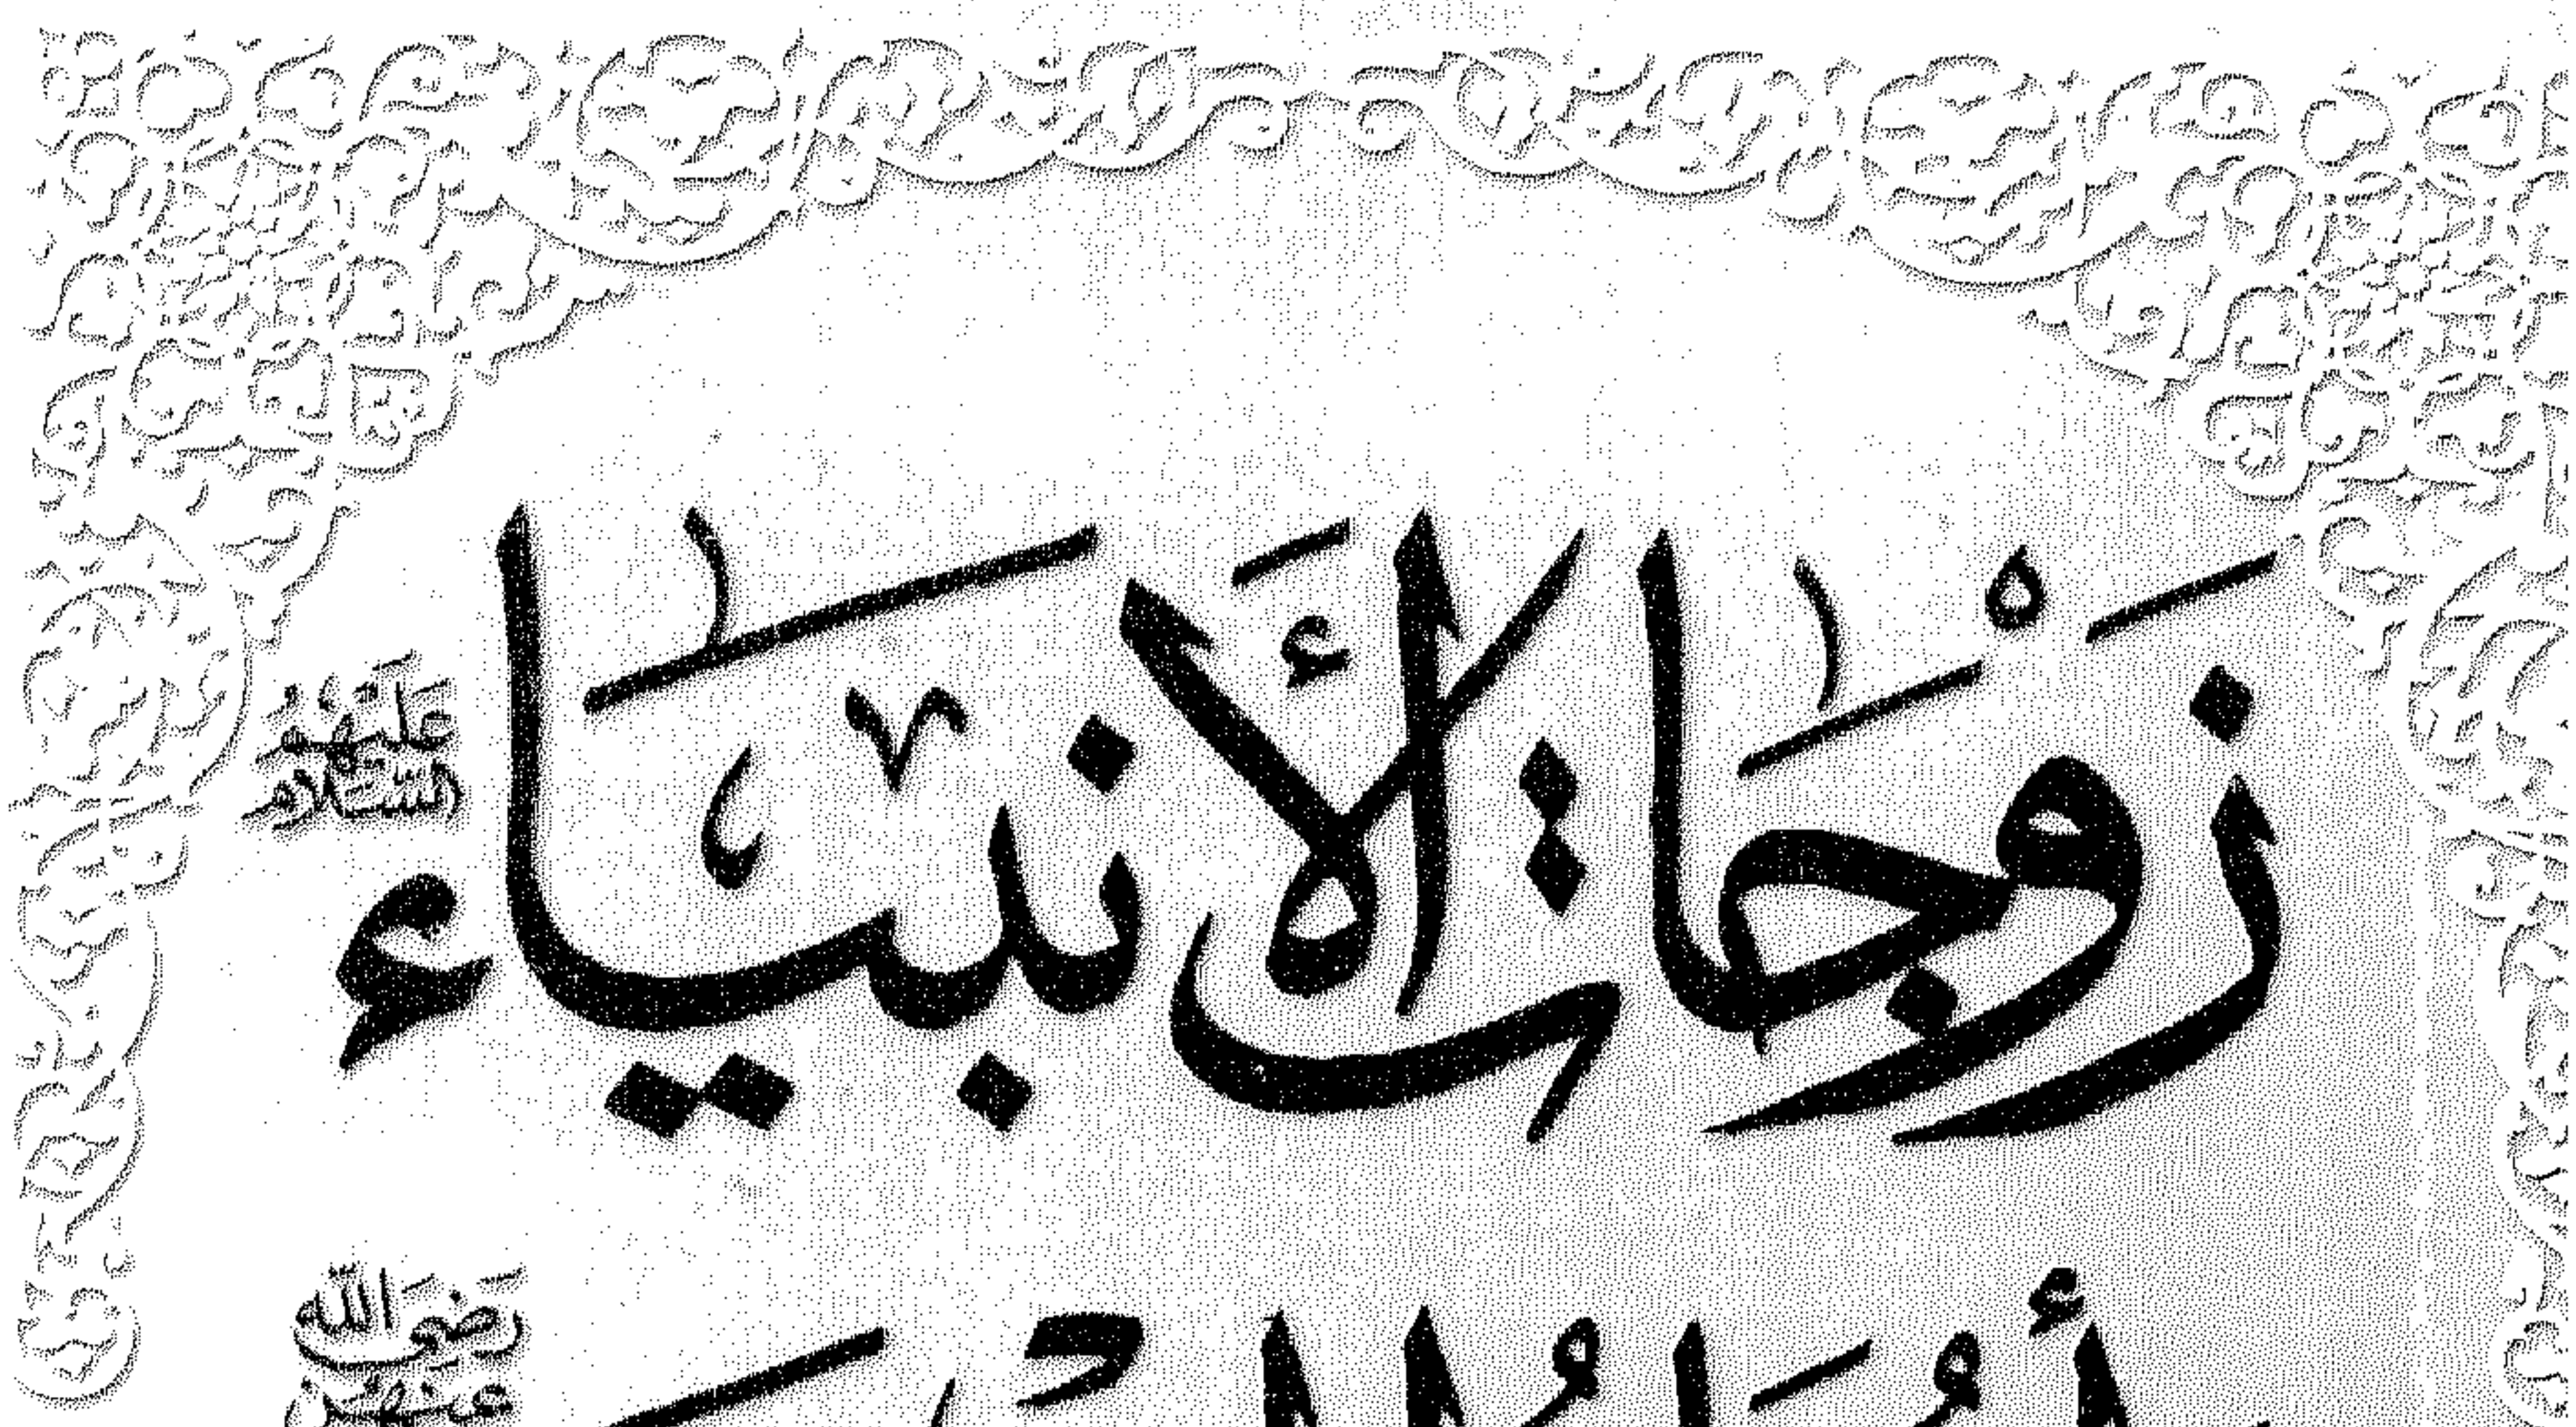 زَوْجَات الأَنبيَاء عَلَيْهِمُ السَّلَام
رَضِيَ اللّه عنهن